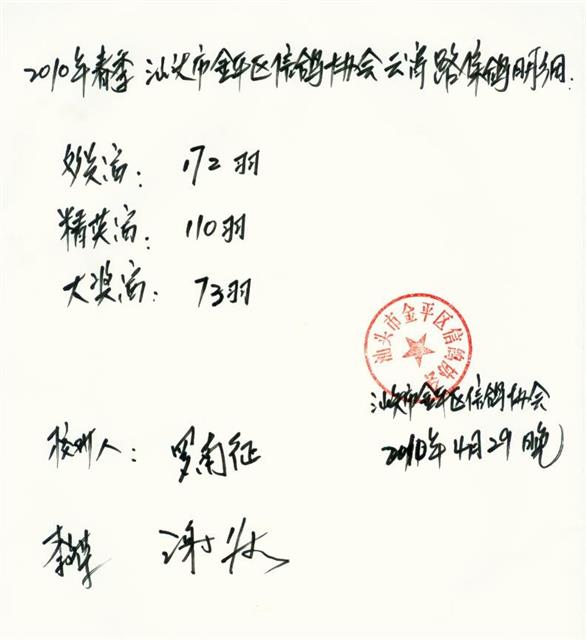 2010年春季汕头市金平区信鸽协会云霄路信鸽明细:
奖赛: 172羽
精英赛: 110羽
大奖赛: 73羽
汕头市金平区信鸽协会
汕头市金平区信鸽协会
2010年4月29晚
核对人: 罗南征
李 谢